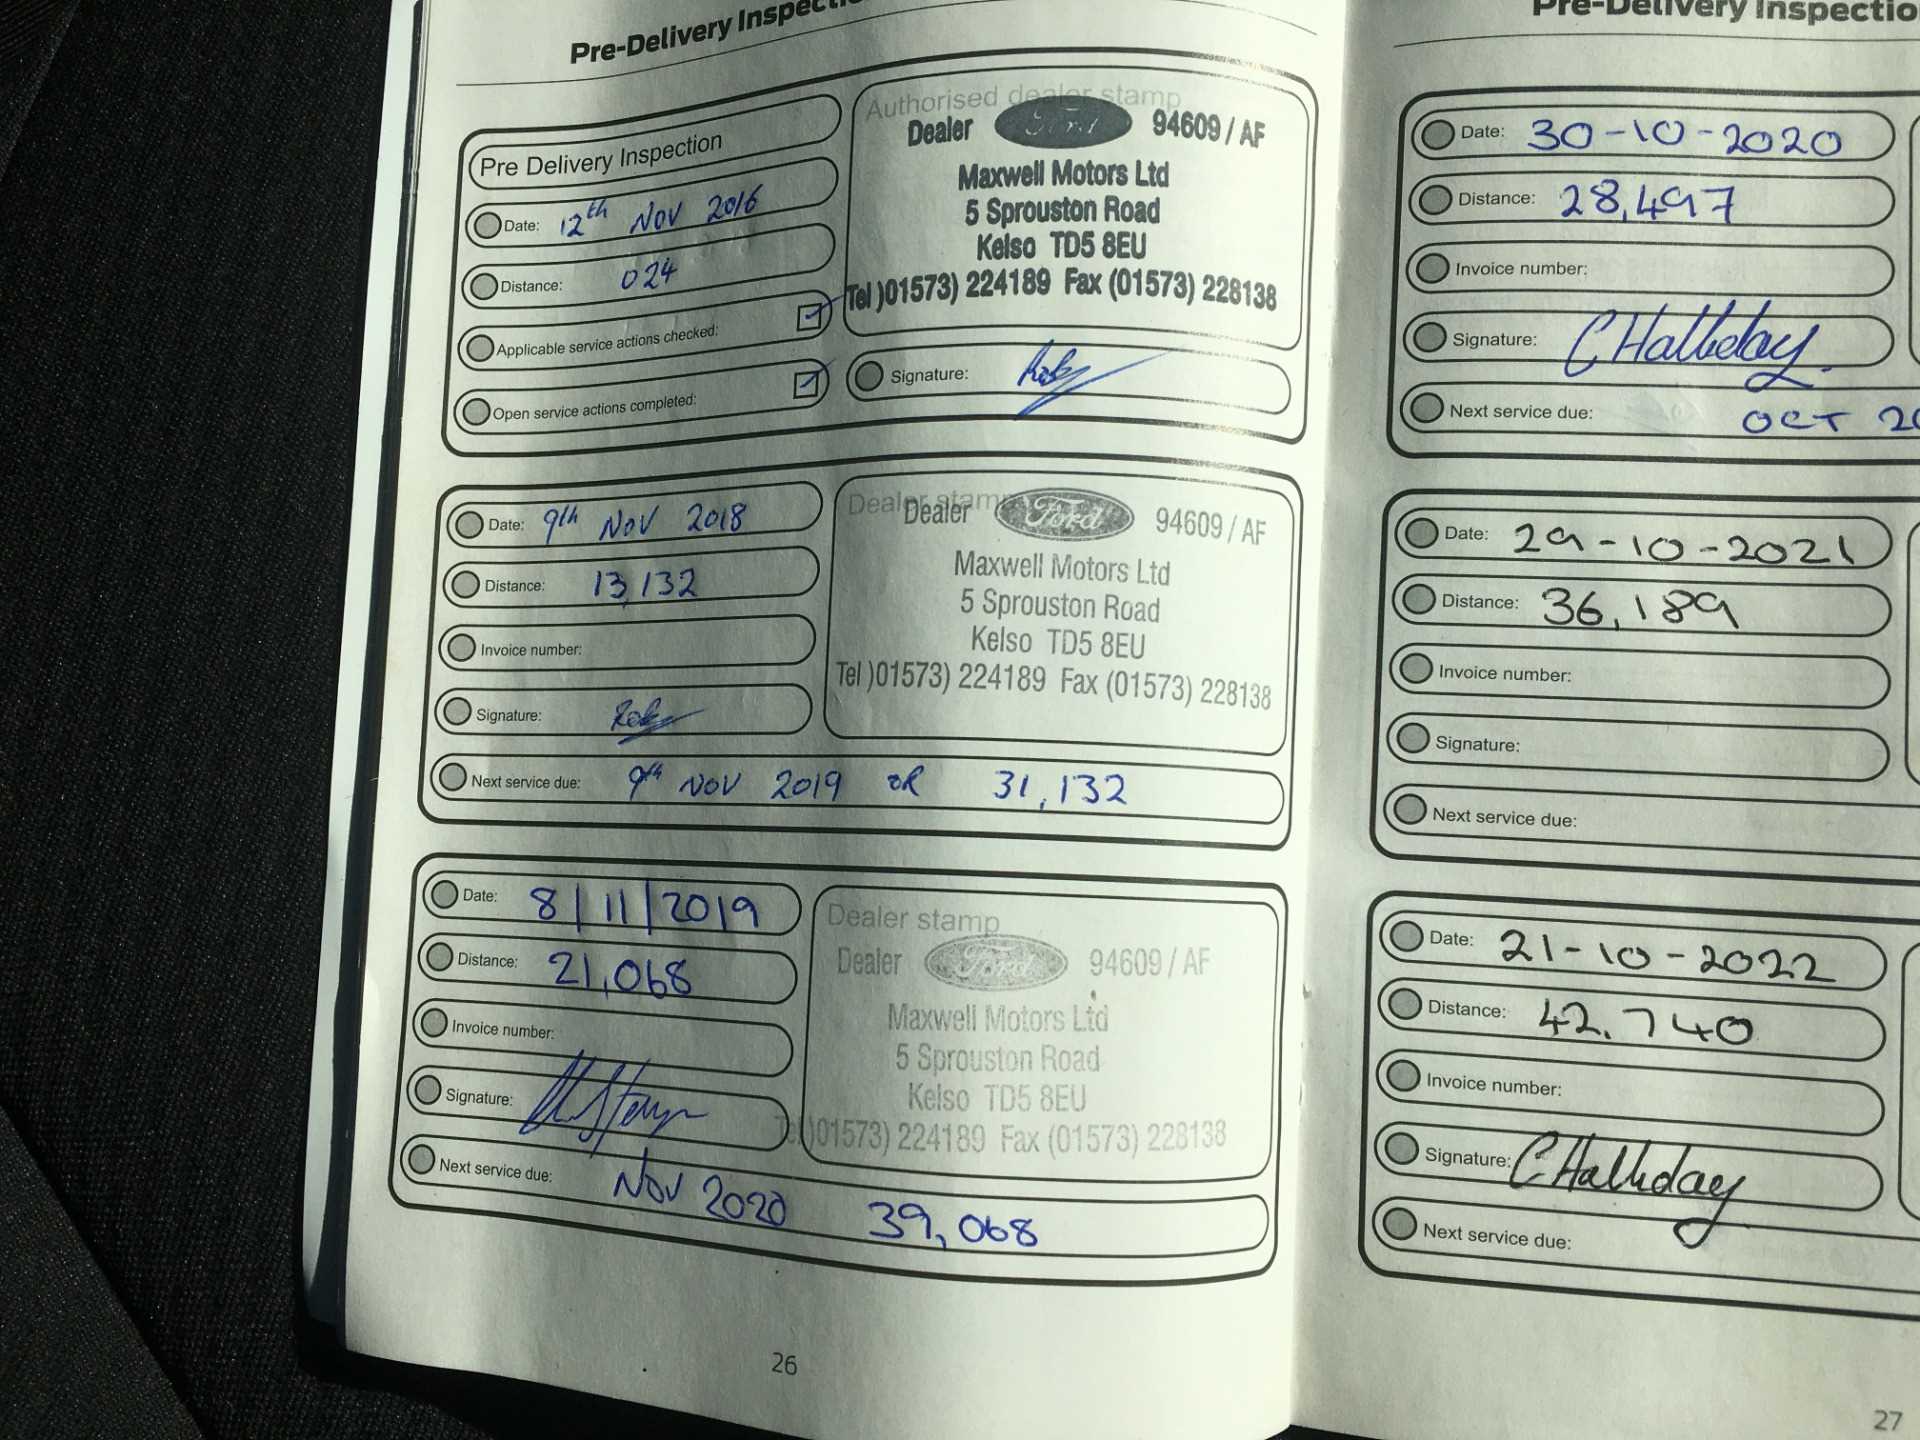 Pre-Delivery Inspecti
Authorised dealer stamp
Dealer Ford 94609 / AF
Maxwell Motors Ltd
5 Sprouston Road
Kelso TD5 8EU
Tel )01573) 224189 Fax (01573) 228138
Pre Delivery Inspection
Date: 12th Nov 2016
Distance: 024
Applicable service actions checked:
Open service actions completed:
Signature:
Date: 9th Nov 2018
Distance: 13,132
Invoice number:
Signature:
Next service due: 9th Nov 2019 or 31,132
Dealer stamp
Dealer Ford 94609 / AF
Maxwell Motors Ltd
5 Sprouston Road
Kelso TD5 8EU
Tel )01573) 224189 Fax (01573) 228138
Date: 8/11/2019
Distance: 21,068
Invoice number:
Signature:
Next service due: Nov 2020 39,068
Dealer stamp
Dealer Ford 94609 / AF
Maxwell Motors Ltd
5 Sprouston Road
Kelso TD5 8EU
Tel )01573) 224189 Fax (01573) 228138
26
Pre-Delivery Inspectio
Date: 30-10-2020
Distance: 28,497
Invoice number:
Signature: C Halliday
Next service due: OCT 20
Date: 29-10-2021
Distance: 36,189
Invoice number:
Signature:
Next service due:
Date: 21-10-2022
Distance: 42,740
Invoice number:
Signature: C Halliday
Next service due:
27